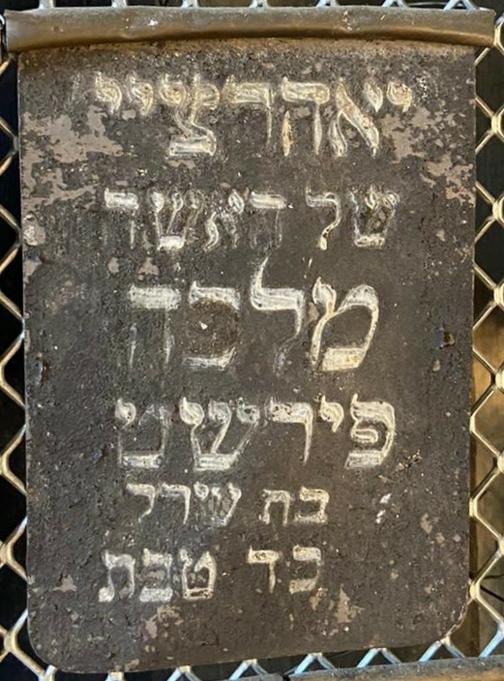 יאהרצייי
של האשה
מלכה
פירשט
בת שרל
כד טבת